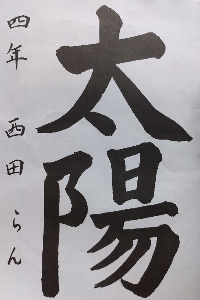 太陽
四年 西田らん